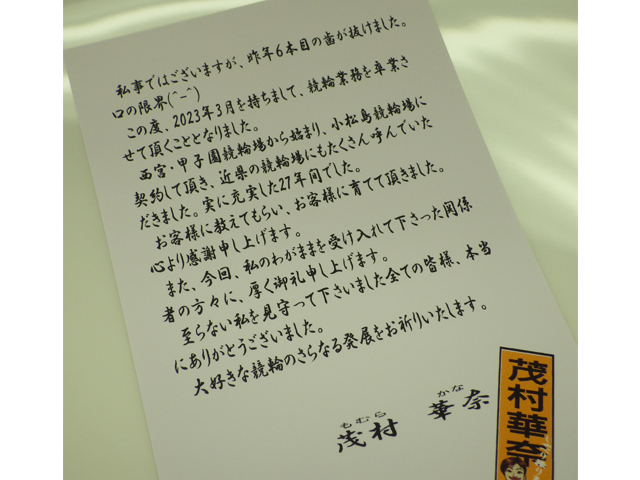 私事ではございますが、昨年6本目の歯が抜けました。
口の限界(^-^)
この度、2023年3月を持ちまして、競輪業務を卒業さ
せて頂くこととなりました。
西宮・甲子園競輪場から始まり、小松島競輪場に
契約して頂き、近県の競輪場にもたくさん呼んでいた
だきました。実に充実した27年間でした。
お客様に教えてもらい、お客様に育てて頂きました。
心より感謝申し上げます。
また、今回、私のわがままを受け入れて下さった関係
者の方々に、厚く御礼申し上げます。
至らない私を見守って下さいました全ての皆様、本当
にありがとうございました。
大好きな競輪のさらなる発展をお祈りいたします。
もむら かな
茂村 華奈
茂村華奈